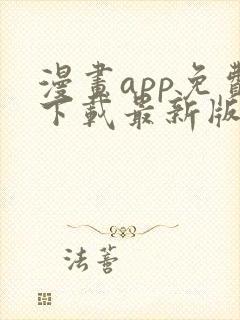 漫畫app免費
下載最新版
法薈